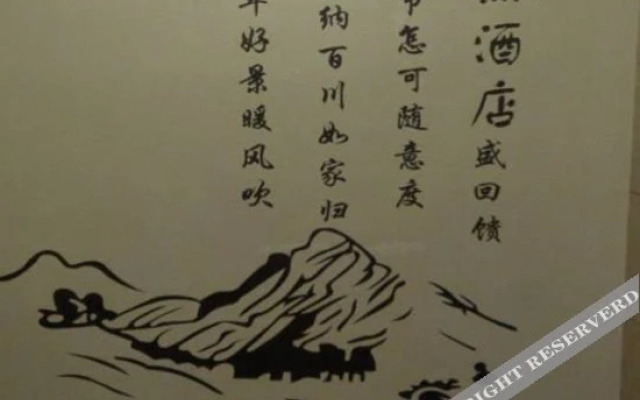 酒店盛回馈
怎可随意度
纳百川如家归
好景暖风吹
RIGHT RESERVERD